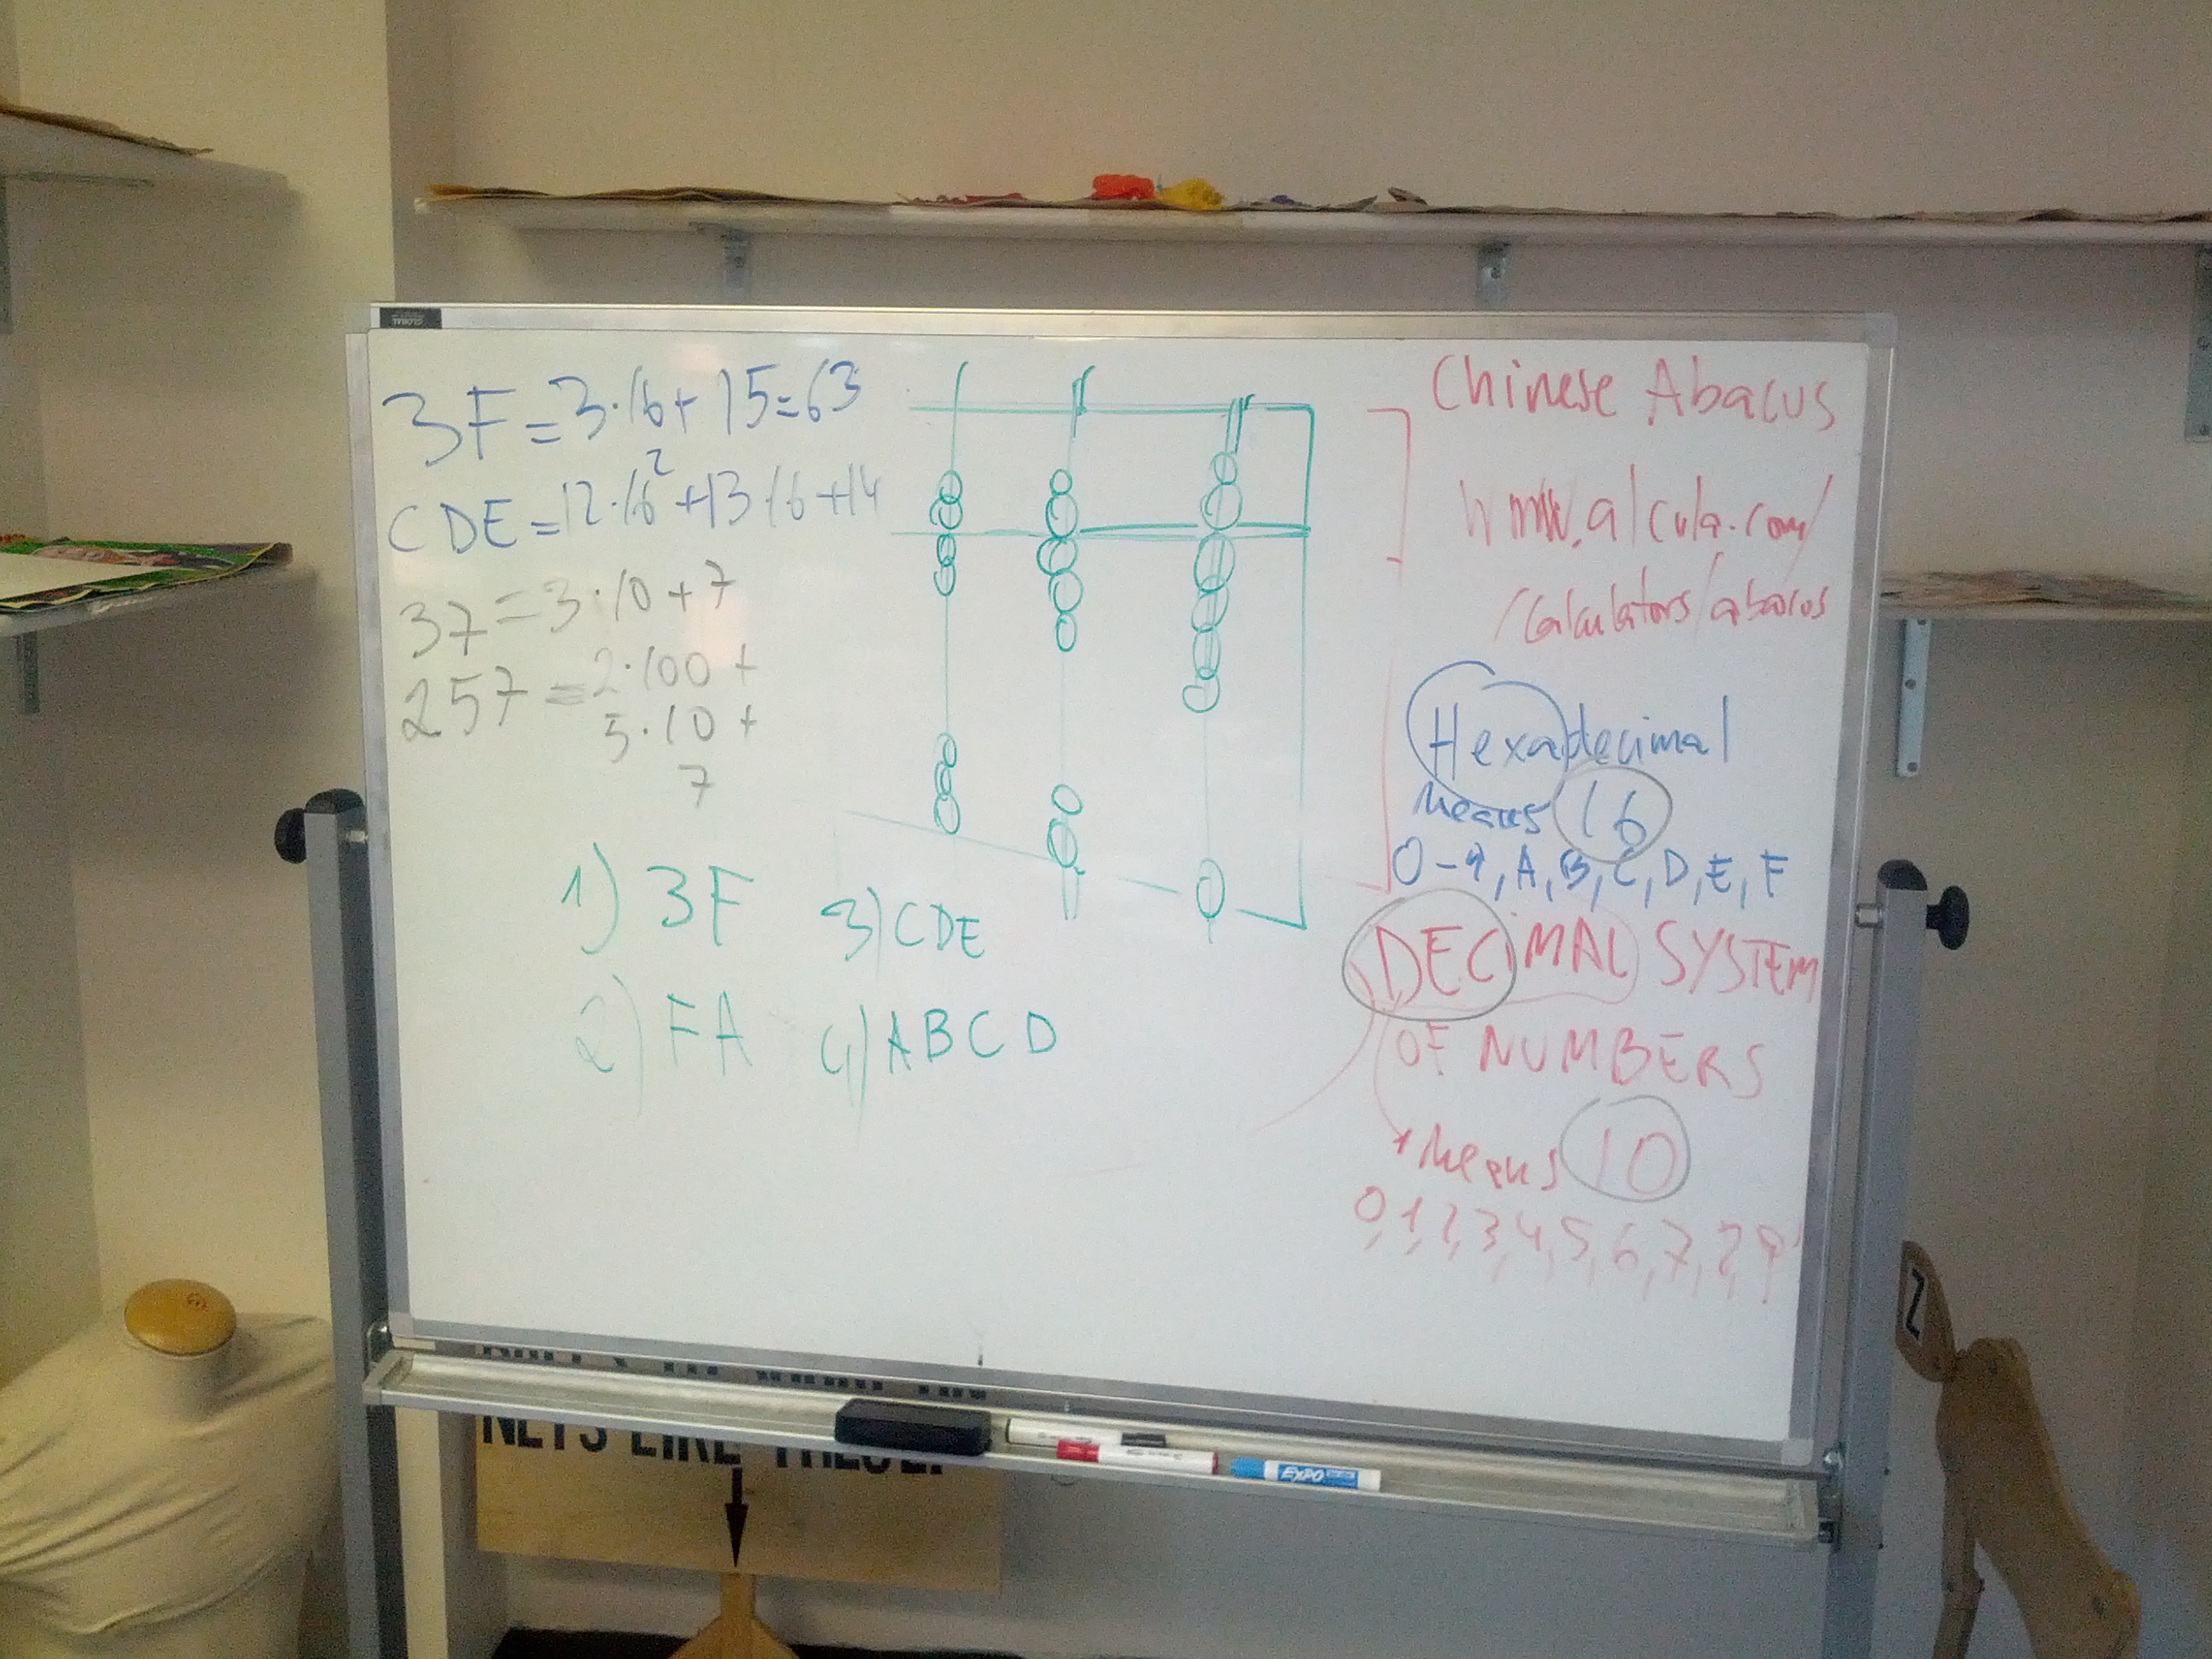 GLOBAL
3F = 3·16 + 15 = 63
CDE = 12·16² + 13·16 + 14
37 = 3·10 + 7
257 = 2·100 +
5·10 +
7
1) 3F
2) FA
3) CDE
4) ABCD
Chinese Abacus
www.alcula.com/
/calculators/abacus
Hexadecimal
means 16
0-9, A, B, C, D, E, F
DECIMAL SYSTEM
OF NUMBERS
means 10
0, 1, 2, 3, 4, 5, 6, 7, 8, 9
NETS LIKE THESE.
EXPO
2